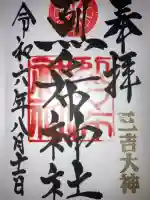 奉拝
三吉大神
布神社
令和六年八月十一日